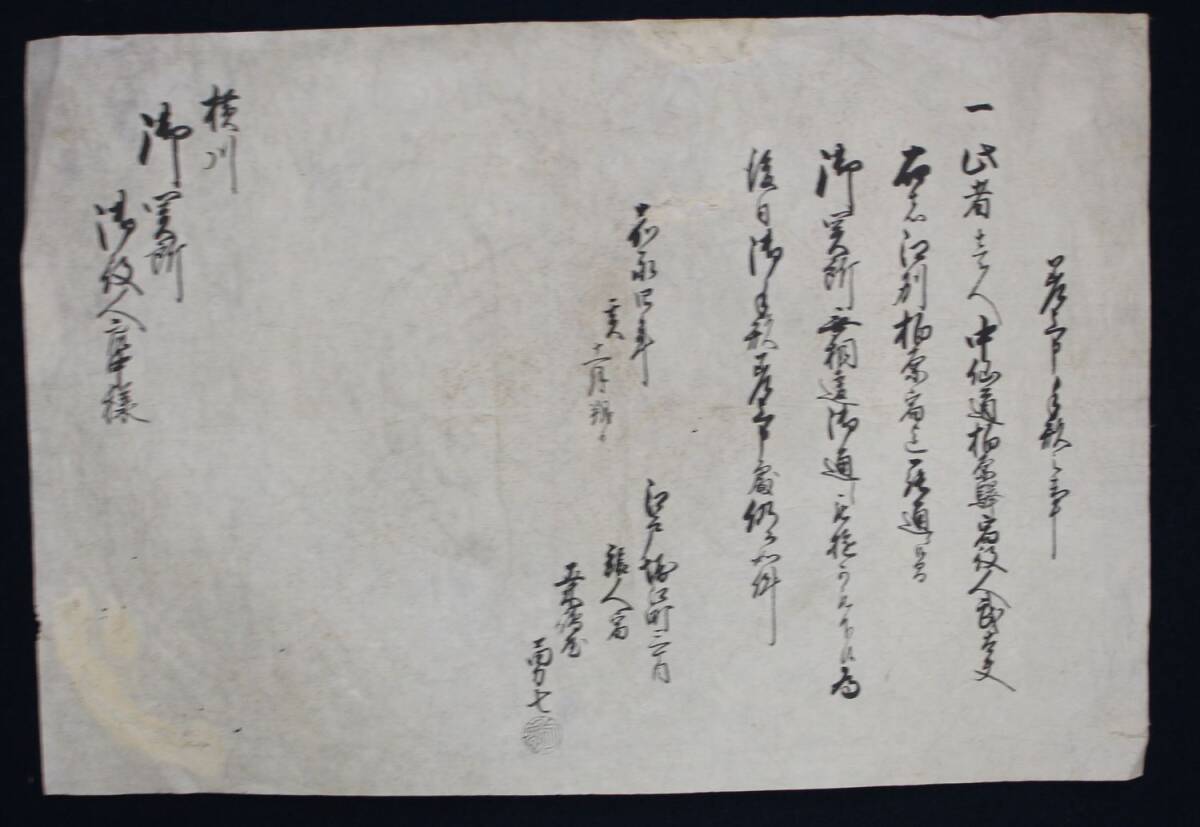 差上申手形之事
一此者壱人中仙道柏原駅宿役人武太夫
右者江州柏原宿迄罷通候間
御関所無相違御通被遊可被下候為
後日御手形差上申処仍而如件
嘉永四年
亥十一月朔日
江戸堀江町二丁目
旅人宿
勇七
横川
御関所
御役人衆中様